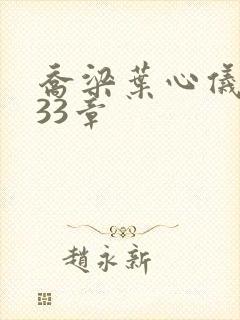 喬梁葉心儀
33章
趙永新